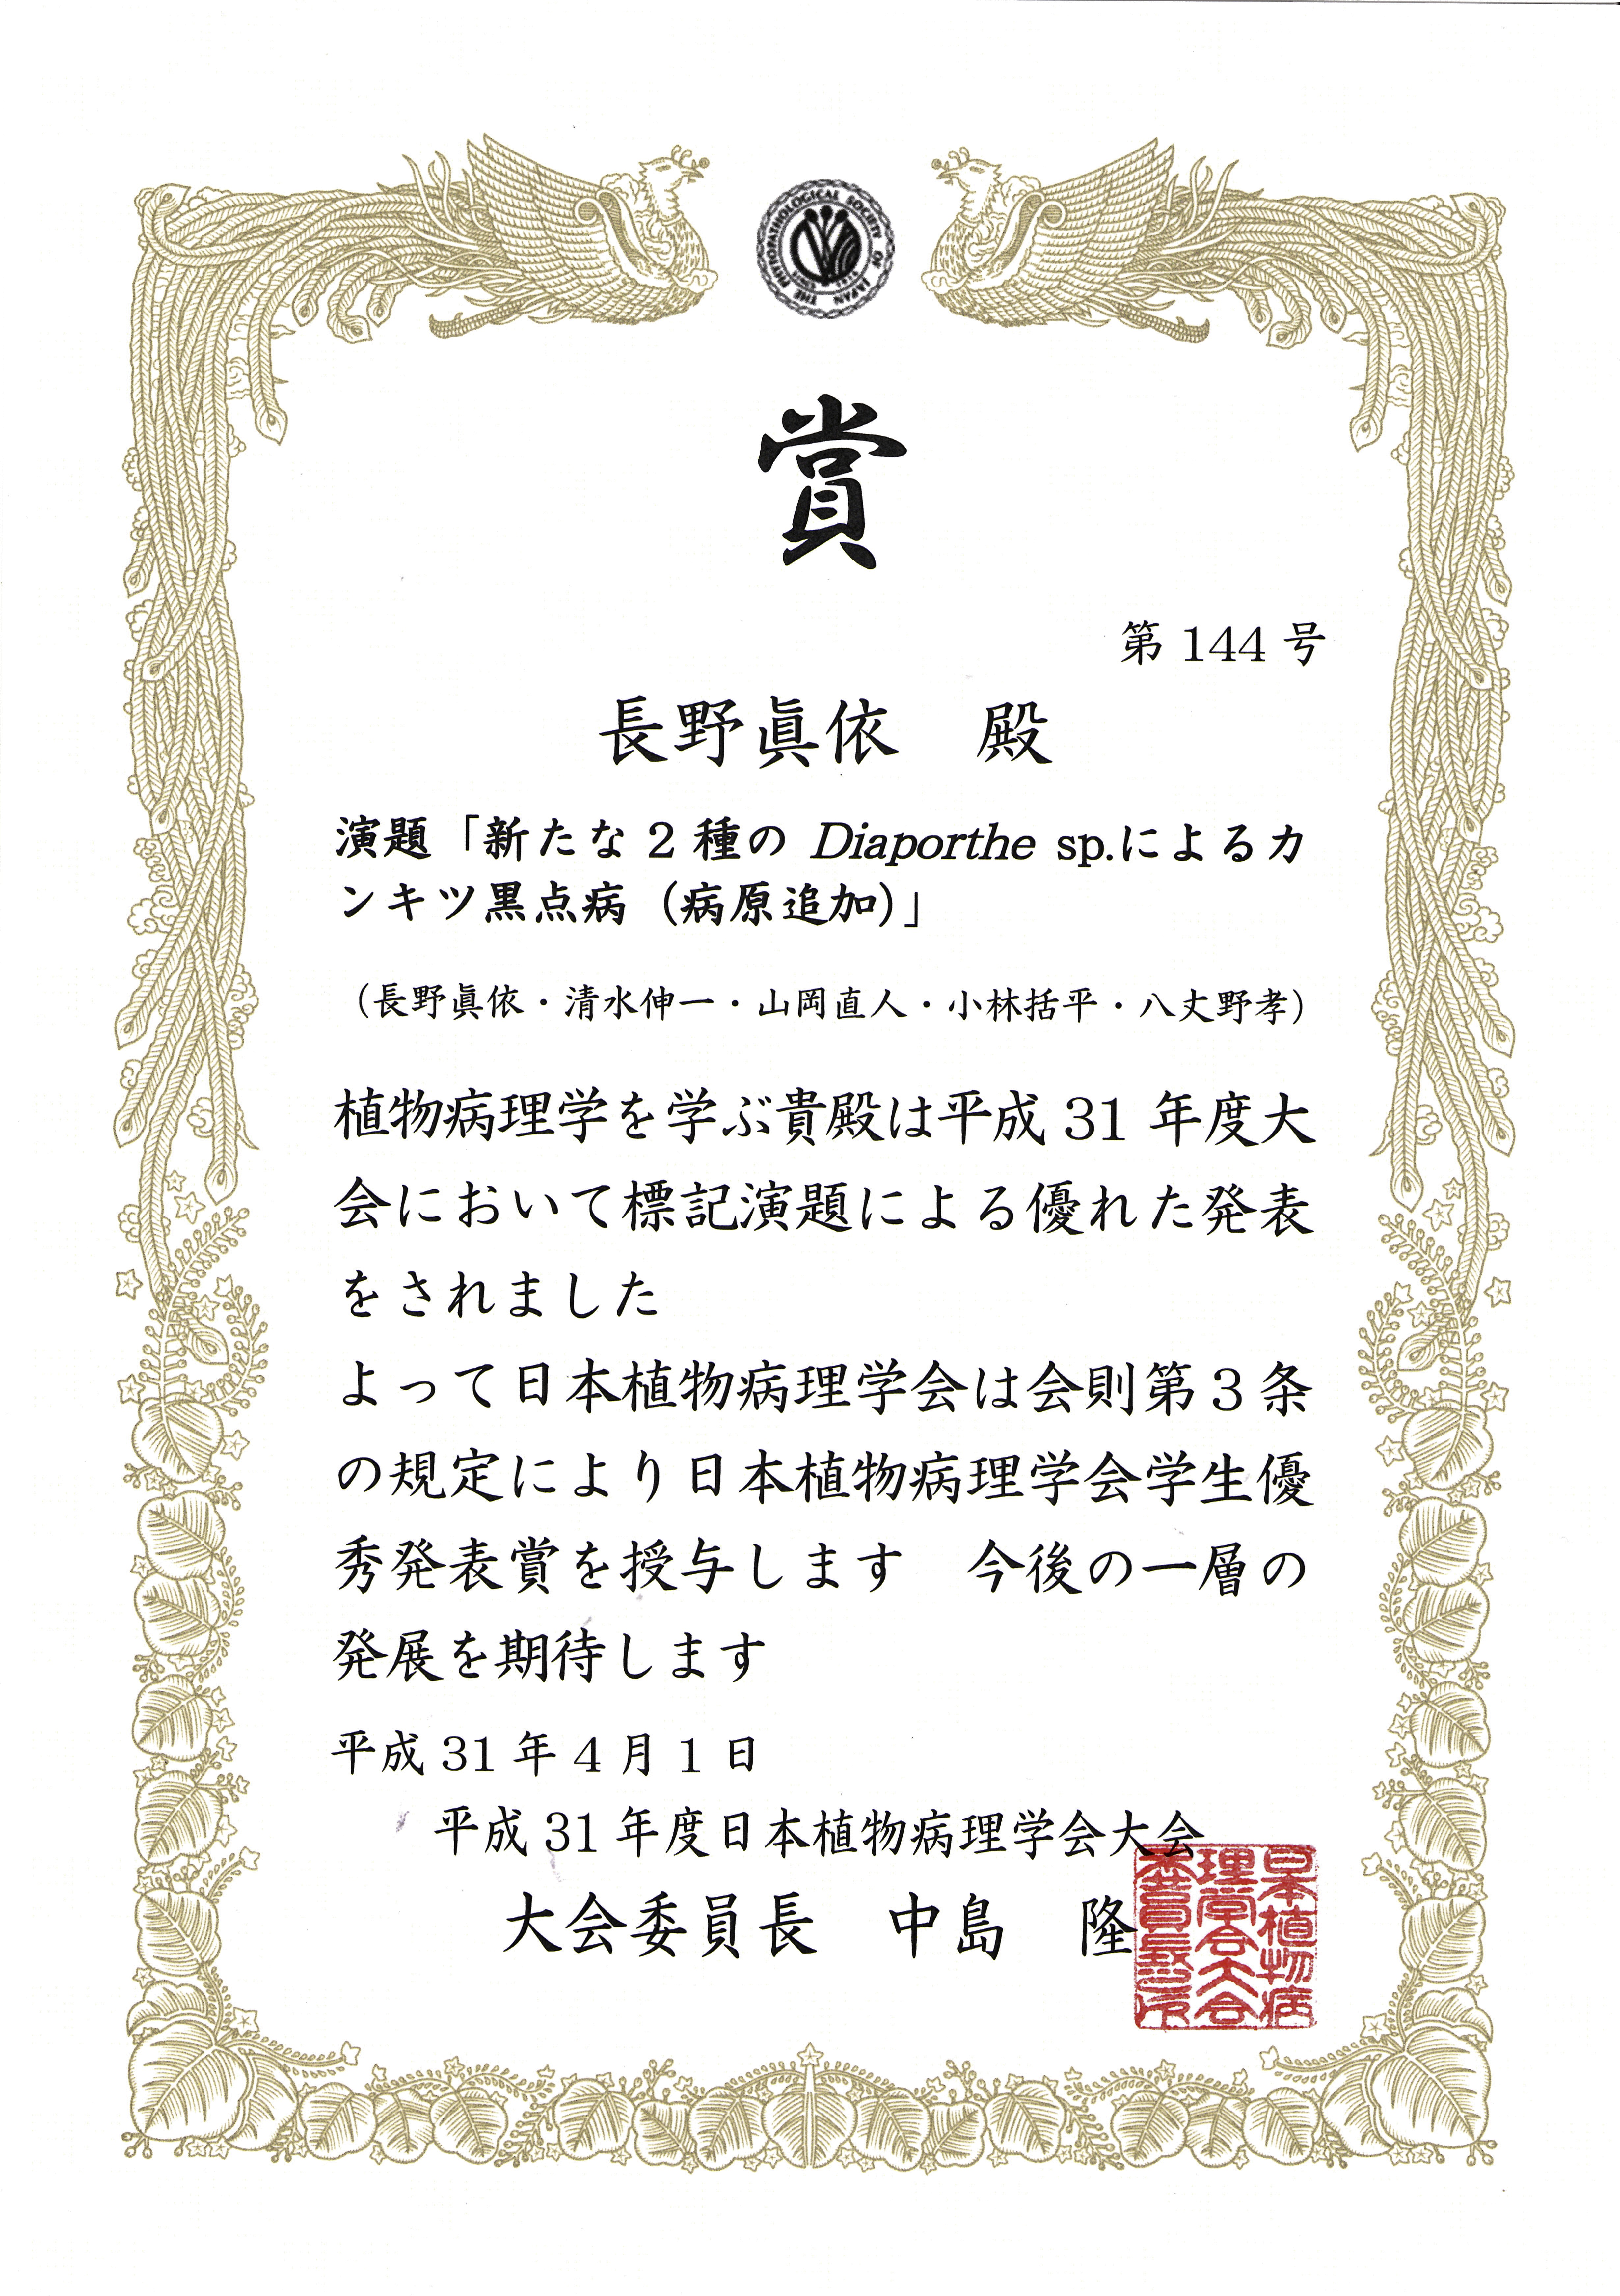 THE PHYTOPATHOLOGICAL SOCIETY OF JAPAN
賞
第 144 号
長野眞依　殿
演題「新たな 2 種の Diaporthe sp.によるカ
ンキツ黒点病（病原追加）」
（長野眞依・清水伸一・山岡直人・小林括平・八丈野孝）
植物病理学を学ぶ貴殿は平成 31 年度大
会において標記演題による優れた発表
をされました
よって日本植物病理学会は会則第 3 条
の規定により日本植物病理学会学生優
秀発表賞を授与します　今後の一層の
発展を期待します
平成 31 年 4 月 1 日
平成 31 年度日本植物病理学会大会
大会委員長　中島　隆
日本植物病
理学会大会
委員長之印